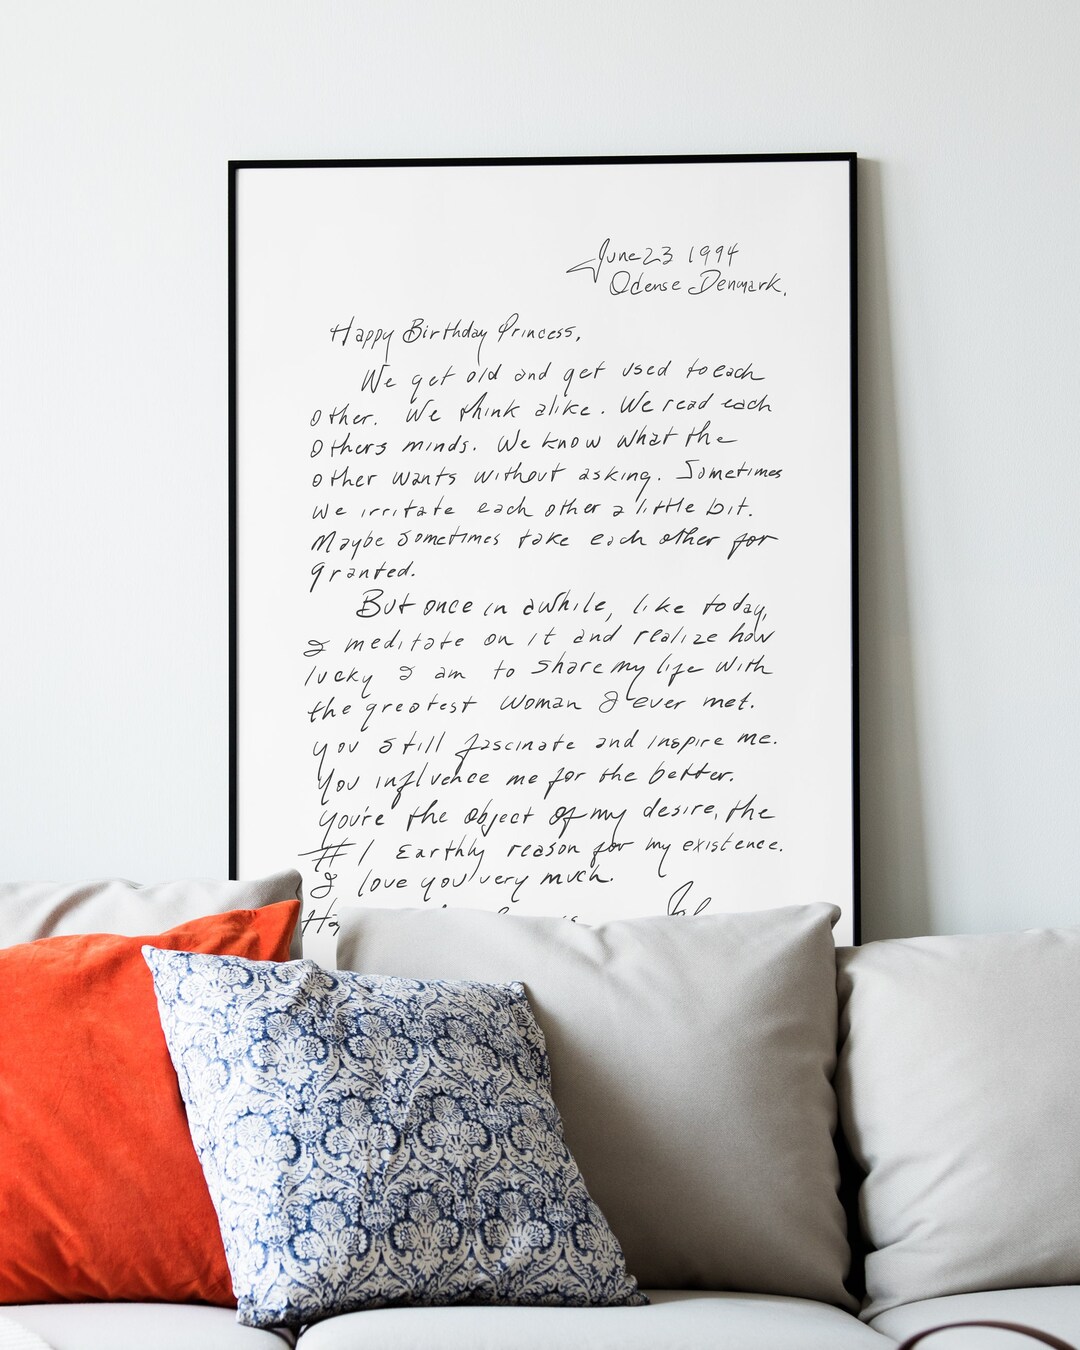 June 23 1994
Odense Denmark.
Happy Birthday Princess,
We get old and get used to each
other. We think alike. We read each
others minds. We know what the
other wants without asking. Sometimes
we irritate each other a little bit.
Maybe sometimes take each other for
granted.
But once in awhile, like today,
I meditate on it and realize how
lucky I am to share my life with
the greatest woman I ever met.
You still fascinate and inspire me.
You influence me for the better.
You're the object of my desire, the
#1 Earthly reason for my existence.
I love you very much.